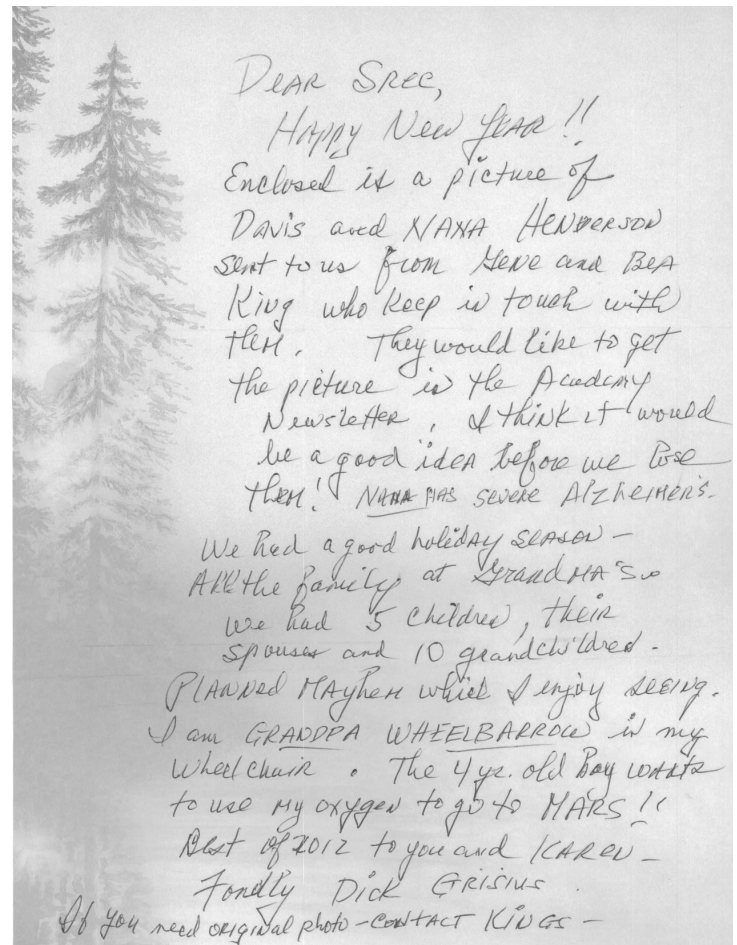 Dear Srec,
Happy New Year!!
Enclosed is a picture of
Davis and Nana Henderson
sent to us from Gene and Bea
King who keep in touch with
them. They would like to get
the picture in the Academy
Newsletter. I think it would
be a good idea before we lose
them! Nana has severe Alzheimer's.
We had a good holiday season –
All the family at Grandma's.
We had 5 children, their
spouses and 10 grandchildren.
Planned Mayhem which I enjoy seeing.
I am GRANDPA WHEELBARROW in my
Wheelchair. The 4 yr. old Boy wants
to use my oxygen to go to MARS!!
Best of 2012 to you and KAREN –
Fondly Dick Grisius.
If you need original photo – CONTACT KINGS –